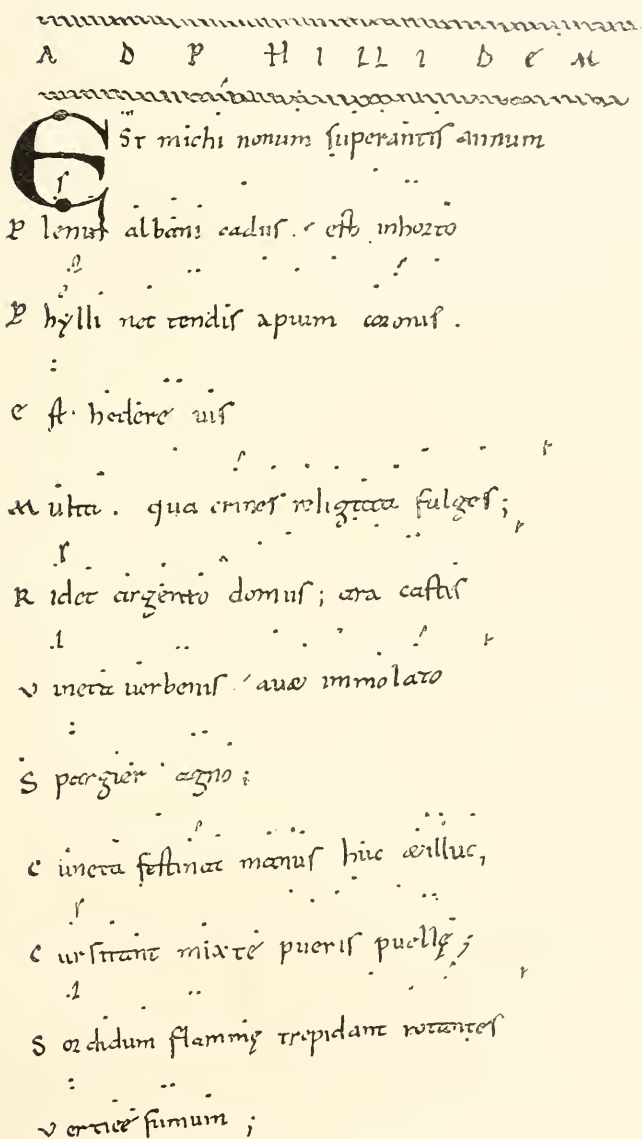 AD PHILLIDEM
Est michi nonum superantis annum
Plenus albani cadus. est inhorto
Phylli nectendis apium coronis.
Est hedere uis
Multa. qua crines religata fulges;
Ridet argento domus; ara castis
Vincta uerbenis auæ immolato
Spargier agno;
Cuncta festinat manus huc æilluc,
Cursitant mixte pueris puellę;
Sordidum flammę trepidant rotantes
Vertice fumum;